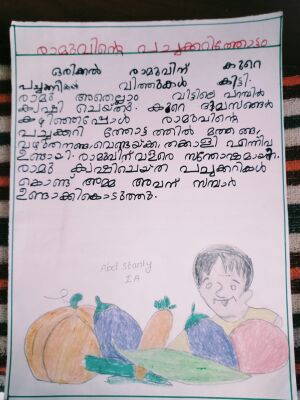 രാമുവിന്റെ പച്ചക്കറിത്തോട്ടം
ഒരിക്കൽ രാമുവിന് കുറെ
പച്ചക്കറി വിത്തുകൾ കിട്ടി.
രാമു അതെല്ലാം വീട്ടിലെ പറമ്പിൽ
കൃഷി ചെയ്തു. കുറെ ദിവസങ്ങൾ
കഴിഞ്ഞപ്പോൾ രാമുവിന്റെ
പച്ചക്കറി ത്തോട്ടത്തിൽ മത്തങ്ങ,
വഴുതനങ്ങ, വെണ്ടയ്ക്ക, തക്കാളി എന്നിവ
ഉണ്ടായി. രാമുവിന് വളരെ സന്തോഷമായി.
രാമു കൃഷിചെയ്ത പച്ചക്കറികൾ
കൊണ്ട് അമ്മ അവന് സമ്പാർ
ഉണ്ടാക്കികൊടുത്തു.
Abel Stanly
I A